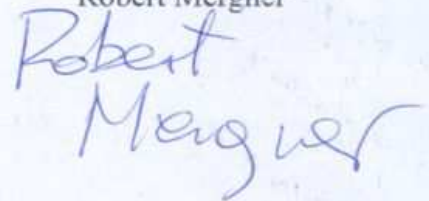 Robert Mergner
Robert
Mergner